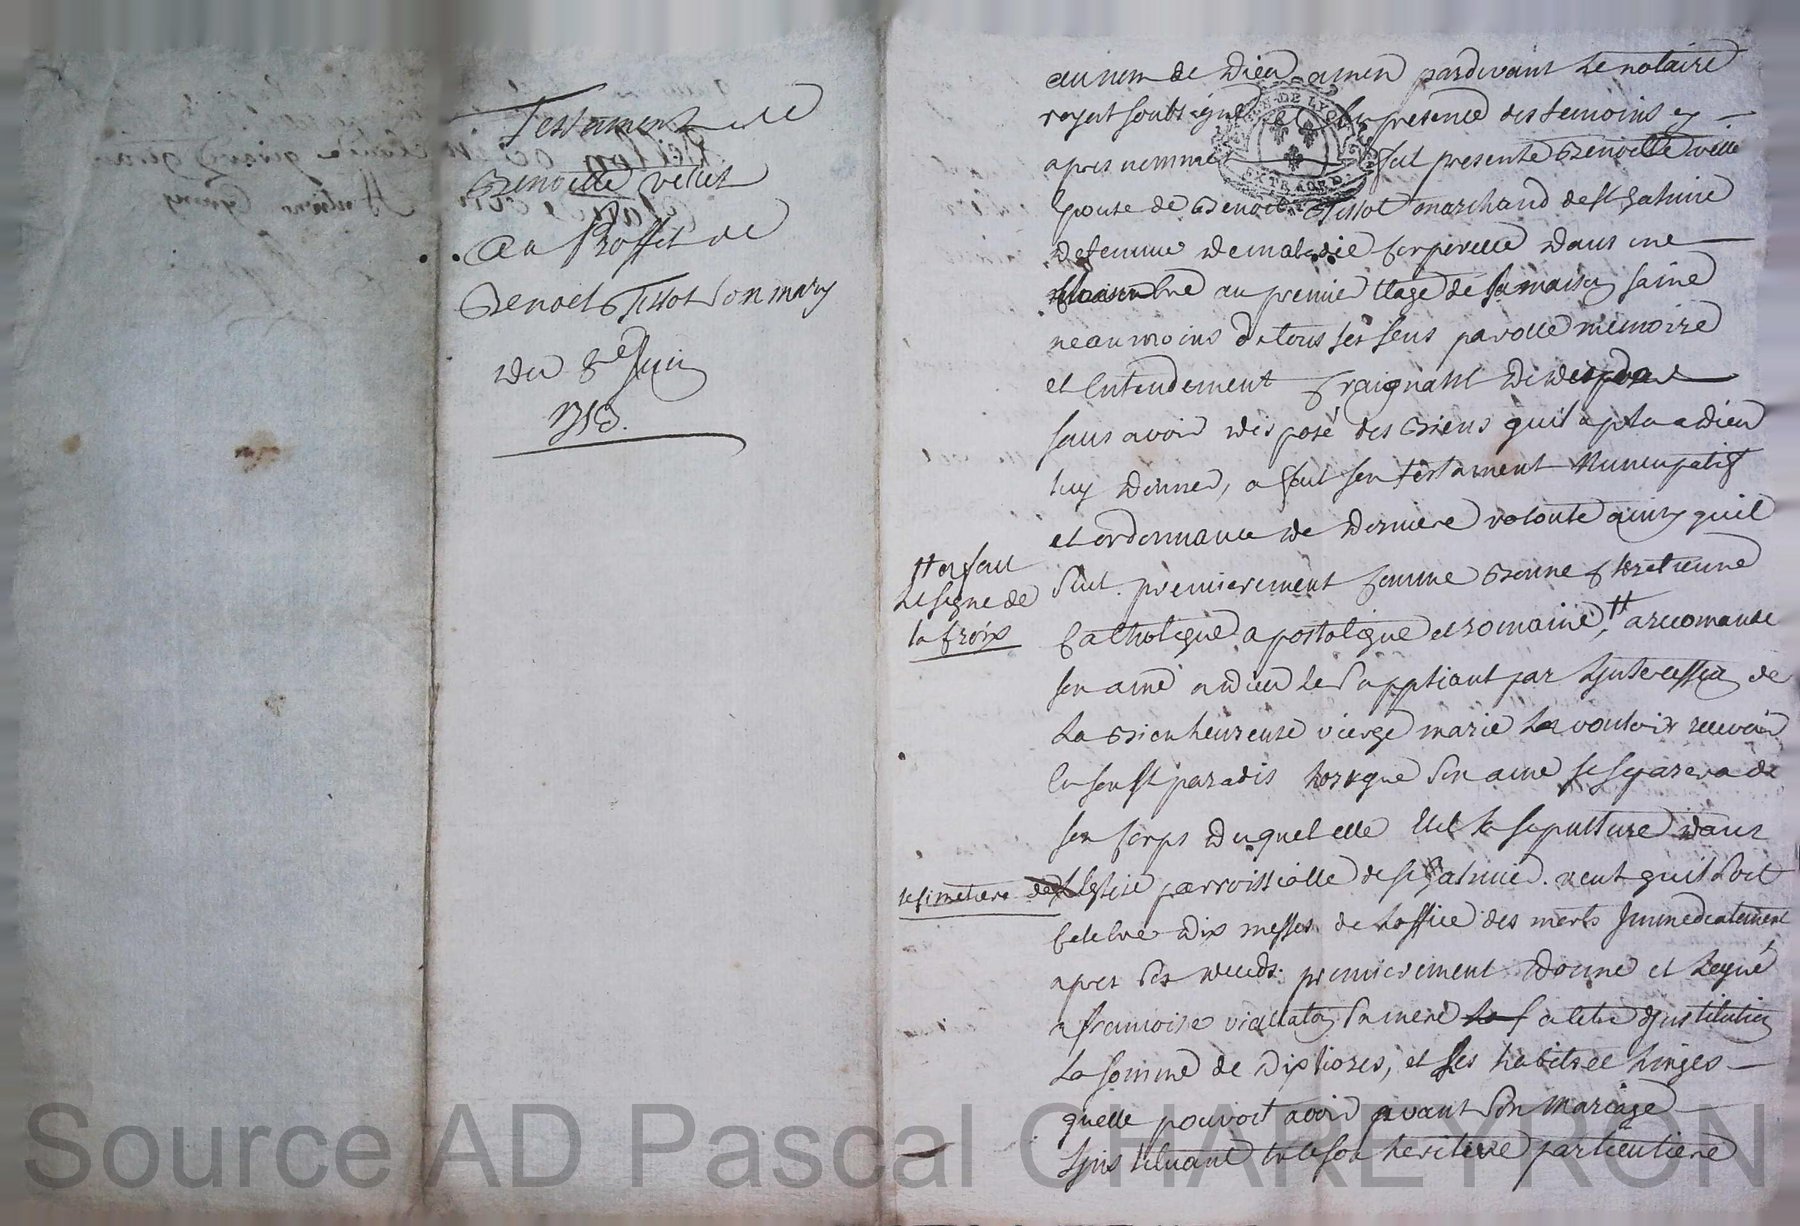 Testament de
Benoitte veller
Au Proffit de
Benoit Tissot Son mary
du 8e Juin
1713.
au nom de Dieu amen pardevant Le notaire
royal soubsigné et En presence des temoins cy
apres nommé fut presente Benoitte
Epouse de Benoit Tissot marchand de St Galmier
detenue de maladie corporelle dans une
chambre au premier Etage de sa maison saine
neaumoins de tous ses sens parolle memoire
et Entendement craignant de
sans avoir disposé des Biens quil a plu a Dieu
luy donner, a fait son testament Nuncupatif
et ordonnance de derniere volonté ainsy quil
suit. premierement comme Bonne chretienne
Catholique apostolique et romaine, ++ a recomandé
++ a fait
Le signe de
la Croix
son ame a Dieu le Suppliant par Lintercession de
La Bien heureuse vierge marie La vouloir recevoir
En son St paradis Lorsque Son ame se separera de
son corps duquel elle Elit sa sepulture dans
le simetiere de LEglise parroissialle de St Galmier. veut quil Soit
Celebré dix messes de Loffice des morts Immediatement
apres Son deceds. premierement donne et Legue
a francoise Sa mere a titre dinstitution
La somme de dix livres, et ses habits et Linges
quelle pouvoit avoir avant Son Mariage
Linstituant En ce son heritiere particuliere
DE LYON
EXTRAORD.
Source AD Pascal CHAREYRON